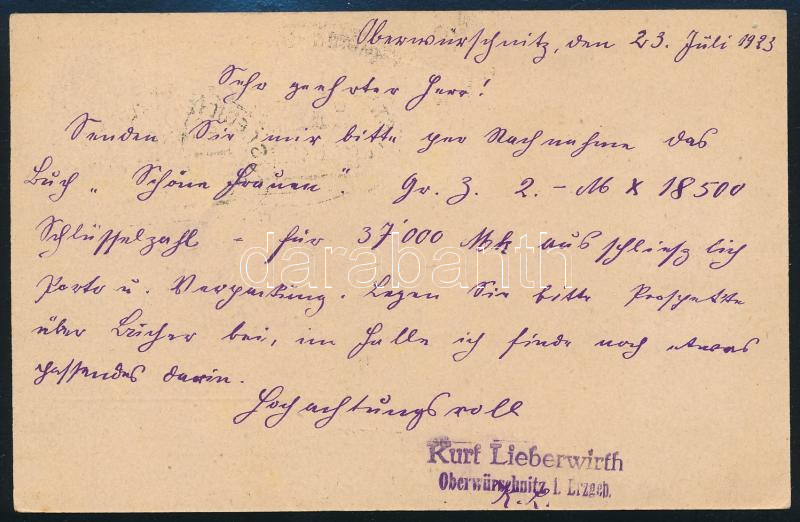 Oberwürschnitz, den 23. Juli 1923
Sehr geehrter Herr!
Senden Sie mir bitte per Nachnahme das
Buch „Schöne Frauen". Gr. Z. 2.- M x 18500
Schlüsselzahl = für 37'000 Mk ausschließlich
Porto u. Verpackung. Legen Sie bitte Prospekte
über Bücher bei, im Falle ich finde noch etwas
passendes darin.
Hochachtungsvoll
Kurt Lieberwirth
Oberwürschnitz i. Erzgeb.
K. L.
darabanth